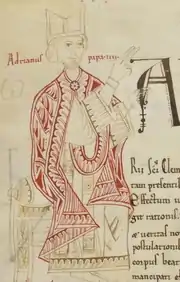 Adrianus papa
A
Rii Sci Clem
ram presentib
Effectum u
gni rationis
æ ueritas no
postulationis
corpus bear
mancipari er